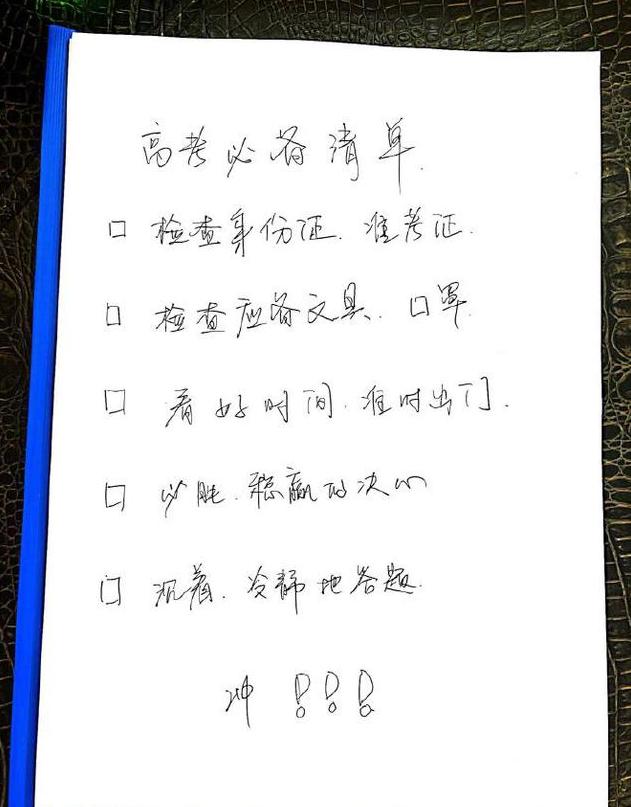 高考必备清单.
□ 检查身份证、准考证.
□ 检查应备文具、口罩
□ 看好时间、准时出门.
□ 必胜、稳赢的决心
□ 沉着、冷静地答题.
冲!!!